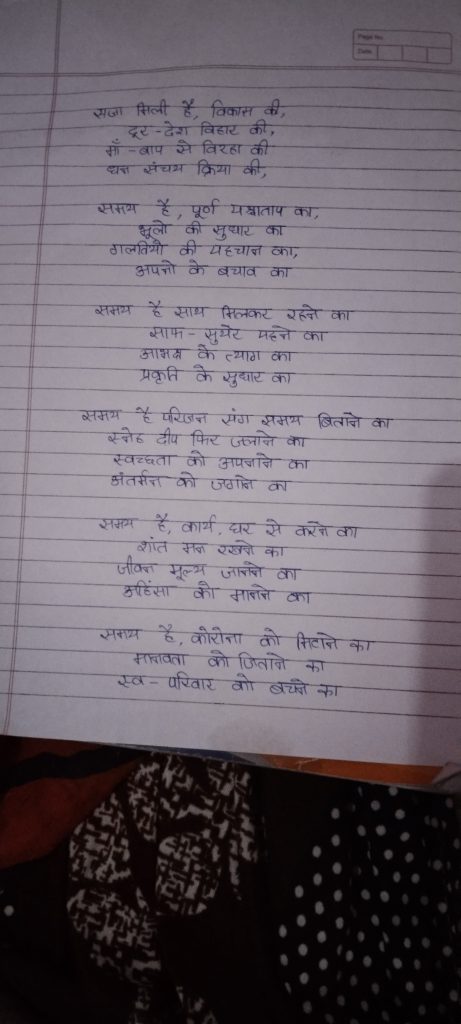 Page No.
Date
सजा मिली है, विकास की,
दूर - देश विहार की,
माँ - बाप से विरहा की
धन संचय क्रिया की,
समय है, पूर्ण पश्चाताप का,
भूलो की सुधार का
गलतियों की पहचान का,
अपनो के बचाव का
समय है साथ मिलकर रहने का
साफ - सुथरे पहने का
आमिष के त्याग का
प्रकृति के सुधार का
समय है परिजन संग समय बिताने का
स्नेह दीप फिर जलाने का
स्वच्छता को अपनाने का
अंतर्मन को जगाने का
समय है, कार्य, घर से करने का
शांत मन रखने का
जीवन मूल्य जानने का
अहिंसा को मानने का
समय है, कोरोना को मिटाने का
मानवता को जिताने का
स्व - परिवार को बचाने का